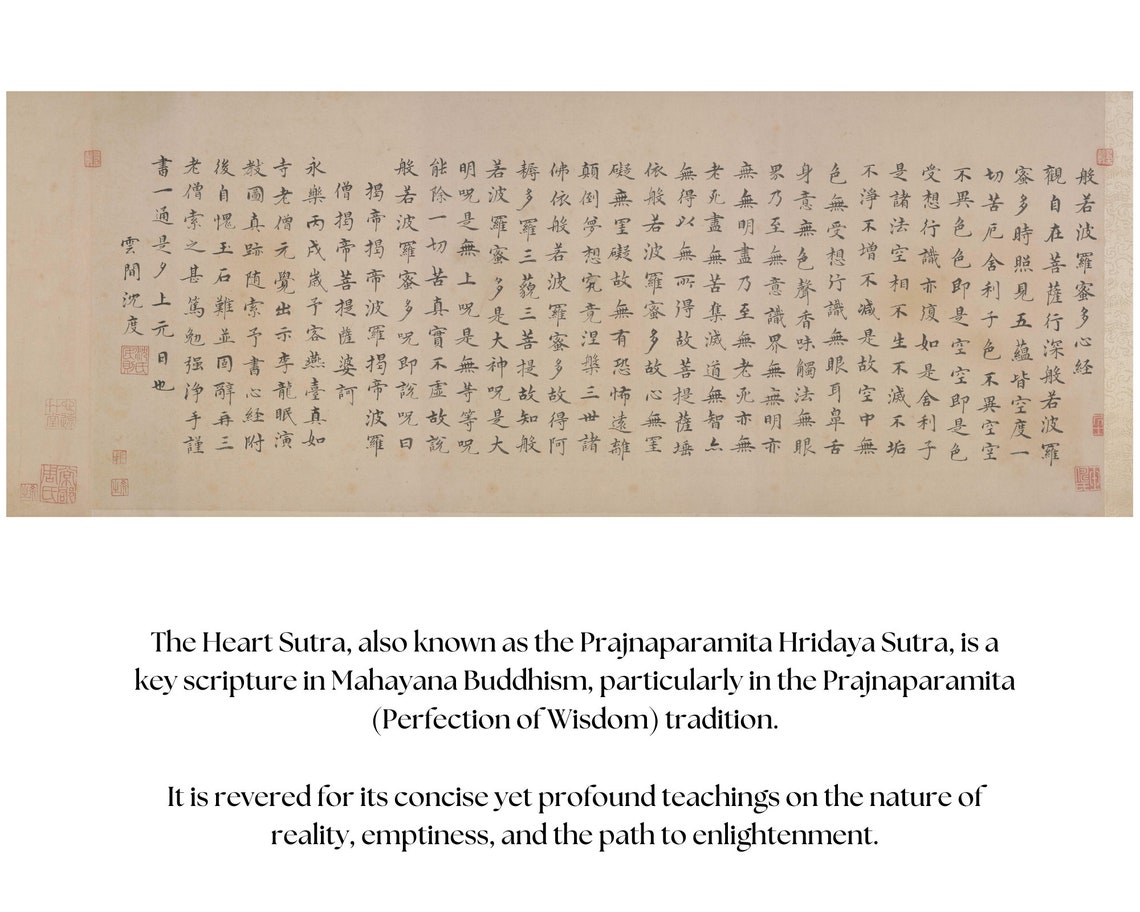 般若波羅蜜多心經
觀自在菩薩行深般若波羅
蜜多時照見五蘊皆空度一
切苦厄舍利子色不異空空
不異色色即是空空即是色
受想行識亦復如是舍利子
是諸法空相不生不滅不垢
不淨不增不減是故空中無
色無受想行識無眼耳鼻舌
身意無色聲香味觸法無眼
界乃至無意識界無無明亦
無無明盡乃至無老死亦無
老死盡無苦集滅道無智亦
無得以無所得故菩提薩埵
依般若波羅蜜多故心無罣
礙無罣礙故無有恐怖遠離
顛倒夢想究竟涅槃三世諸
佛依般若波羅蜜多故得阿
耨多羅三藐三菩提故知般
若波羅蜜多是大神呪是大
明呪是無上呪是無等等呪
能除一切苦真實不虛故說
般若波羅蜜多呪即說呪曰
揭帝揭帝波羅揭帝波羅
僧揭帝菩提薩婆訶
永樂丙戌歲予客燕臺真如
寺老僧元覺出示李龍眠演
教圖真跡隨索予書心經附
後自愧玉石難並固辭再三
老僧索之甚篤勉强淨手謹
書一通是夕上元日也
雲間沈度
The Heart Sutra, also known as the Prajnaparamita Hridaya Sutra, is a
key scripture in Mahayana Buddhism, particularly in the Prajnaparamita
(Perfection of Wisdom) tradition.
It is revered for its concise yet profound teachings on the nature of
reality, emptiness, and the path to enlightenment.